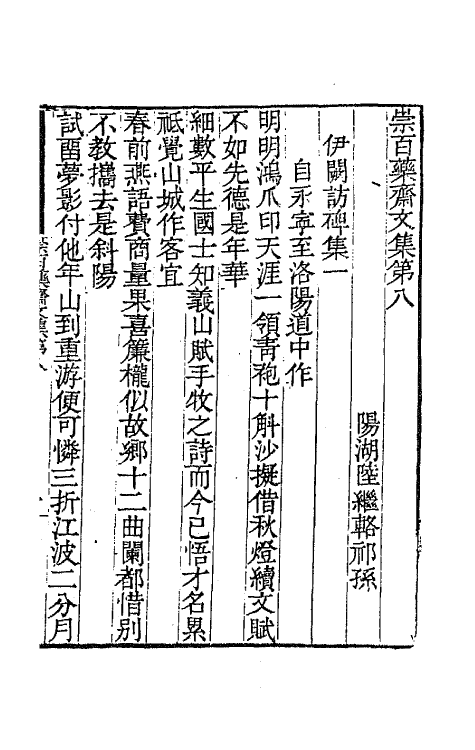 崇百藥齋文集第八
陽湖陸繼輅祁孫
伊闕訪碑集一
自永寧至洛陽道中作
明明鴻爪印天涯一領青袍十斛沙擬借秋燈續文賦
不如先德是年華
細數平生國士知義山賦手牧之詩而今已悟才名累
祇覺山城作客宜
春前燕語費商量果喜簾櫳似故鄉十二曲闌都惜别
不教攜去是斜陽
試畱夢影付他年山到重游便可憐三折江波二分月
崇百藥齋文集第八
一